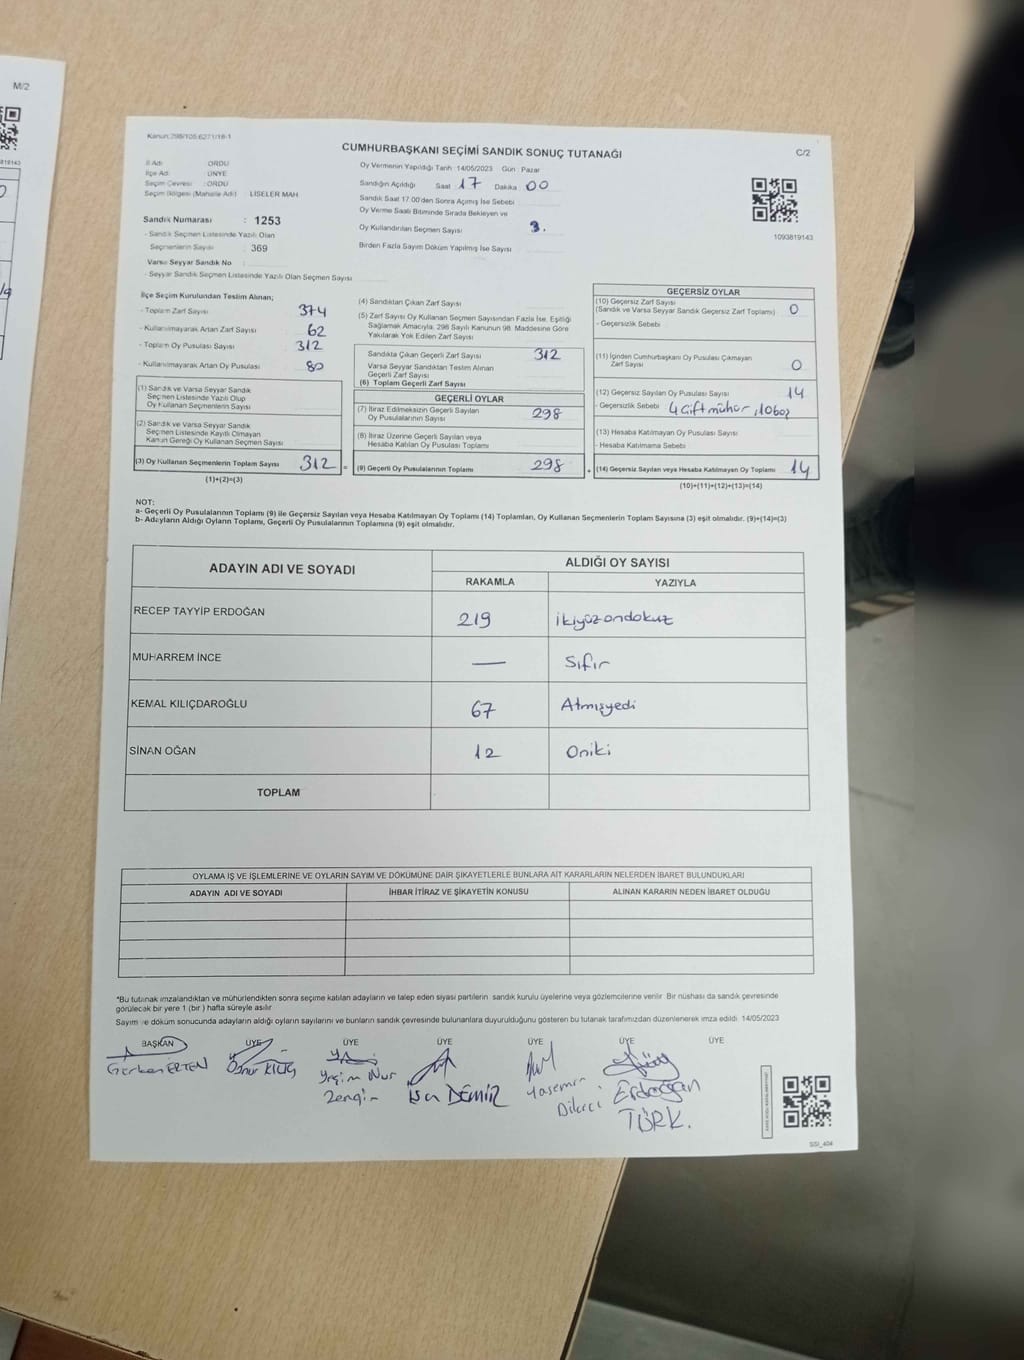 M/2
Kanun:298/105.6271/18-1
CUMHURBAŞKANI SEÇİMİ SANDIK SONUÇ TUTANAĞI
C/2
İl Adı : ORDU
İlçe Adı : ÜNYE
Seçim Çevresi : ORDU
Seçim Bölgesi (Mahalle Adı) : LİSELER MAH
Sandık Numarası : 1253
- Sandık Seçmen Listesinde Yazılı Olan
Seçmenlerin Sayısı : 369
Varsa Seyyar Sandık No :
- Seyyar Sandık Seçmen Listesinde Yazılı Olan Seçmen Sayısı
Oy Vermenin Yapıldığı Tarih :14/05/2023 Gün : Pazar
Sandığın Açıldığı Saat 17 Dakika 00
Sandık Saat 17:00'den Sonra Açılmış İse Sebebi
Oy Verme Saati Bitiminde Sırada Bekleyen ve
Oy Kullandırılan Seçmen Sayısı 3.
Birden Fazla Sayım Döküm Yapılmış İse Sayısı
1093819143
İlçe Seçim Kurulundan Teslim Alınan;
- Toplam Zarf Sayısı 374
- Kullanılmayarak Artan Zarf Sayısı 62
- Toplam Oy Pusulası Sayısı 312
- Kullanılmayarak Artan Oy Pusulası 80
(1) Sandık ve Varsa Seyyar Sandık
Seçmen Listesinde Yazılı Olup
Oy Kullanan Seçmenlerin Sayısı
(2) Sandık ve Varsa Seyyar Sandık
Seçmen Listesinde Kayıtlı Olmayan
Kanun Gereği Oy Kullanan Seçmen Sayısı
(3) Oy Kullanan Seçmenlerin Toplam Sayısı 312 =
(1)+(2)=(3)
(4) Sandıktan Çıkan Zarf Sayısı
(5) Zarf Sayısı Oy Kullanan Seçmen Sayısından Fazla İse, Eşitliği
Sağlamak Amacıyla, 298 Sayılı Kanunun 98. Maddesine Göre
Yakılarak Yok Edilen Zarf Sayısı
Sandıkta Çıkan Geçerli Zarf Sayısı 312
Varsa Seyyar Sandıktan Teslim Alınan
Geçerli Zarf Sayısı
(6) Toplam Geçerli Zarf Sayısı
GEÇERLİ OYLAR
(7) İtiraz Edilmeksizin Geçerli Sayılan
Oy Pusulalarının Sayısı 298
(8) İtiraz Üzerine Geçerli Sayılan veya
Hesaba Katılan Oy Pusulası Toplamı
(9) Geçerli Oy Pusulalarının Toplamı 298 +
GEÇERSİZ OYLAR
(10) Geçersiz Zarf Sayısı
(Sandık ve Varsa Seyyar Sandık Geçersiz Zarf Toplamı) 0
- Geçersizlik Sebebi
(11) İçinden Cumhurbaşkanı Oy Pusulası Çıkmayan
Zarf Sayısı 0
(12) Geçersiz Sayılan Oy Pusulası Sayısı 14
- Geçersizlik Sebebi 4 Çift mühür, 10 boş
(13) Hesaba Katılmayan Oy Pusulası Sayısı
- Hesaba Katılmama Sebebi
(14) Geçersiz Sayılan veya Hesaba Katılmayan Oy Toplamı 14
(10)+(11)+(12)+(13)=(14)
NOT:
a- Geçerli Oy Pusulalarının Toplamı (9) ile Geçersiz Sayılan veya Hesaba Katılmayan Oy Toplamı (14) Toplamları, Oy Kullanan Seçmenlerin Toplam Sayısına (3) eşit olmalıdır. (9)+(14)=(3)
b- Adayların Aldığı Oyların Toplamı, Geçerli Oy Pusulalarının Toplamına (9) eşit olmalıdır.
ADAYIN ADI VE SOYADI ALDIĞI OY SAYISI
RAKAMLA YAZIYLA
RECEP TAYYİP ERDOĞAN 219 ikiyüzondokuz
MUHARREM İNCE — Sıfır
KEMAL KILIÇDAROĞLU 67 Atmışyedi
SİNAN OĞAN 12 Oniki
TOPLAM
OYLAMA İŞ VE İŞLEMLERİNE VE OYLARIN SAYIM VE DÖKÜMÜNE DAİR ŞİKAYETLERLE BUNLARA AİT KARARLARIN NELERDEN İBARET BULUNDUKLARI
ADAYIN ADI VE SOYADI İHBAR İTİRAZ VE ŞİKAYETİN KONUSU ALINAN KARARIN NEDEN İBARET OLDUĞU
*Bu tutanak imzalandıktan ve mühürlendikten sonra seçime katılan adayların ve talep eden siyasi partilerin sandık kurulu üyelerine veya gözlemcilerine verilir. Bir nüshası da sandık çevresinde
görülecek bir yere 1 (bir) hafta süreyle asılır.
Sayım ve döküm sonucunda adayların aldığı oyların sayılarını ve bunların sandık çevresinde bulunanlara duyurulduğunu gösteren bu tutanak tarafımızdan düzenlenerek imza edildi. 14/05/2023
BAŞKAN ÜYE ÜYE ÜYE ÜYE ÜYE ÜYE
Gürkan ERTEN
Öznur KILIÇ
Yeşim Nur
Zengin
İsa DEMİR
Yasemin
Dikici
Erdoğan
TÜRK.
SSI_404